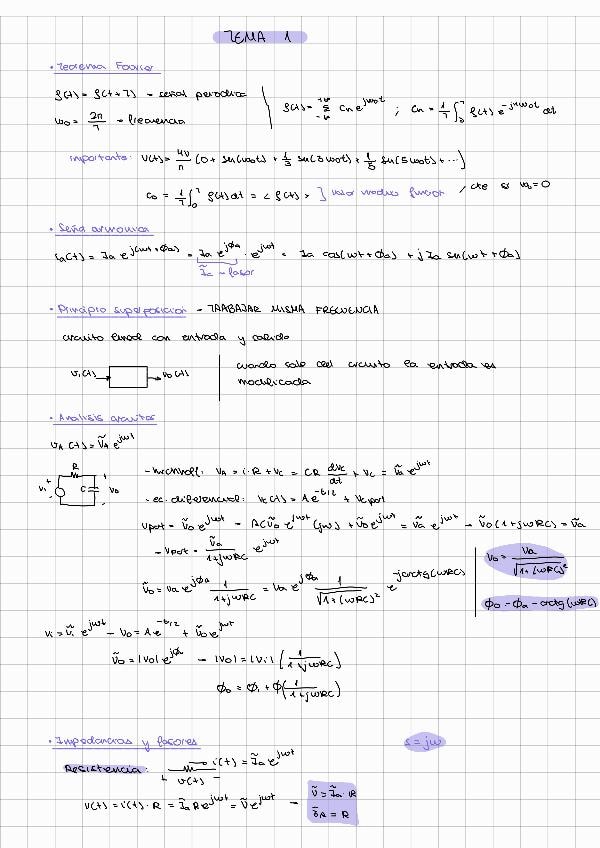 TEMA 1
• Teorema Fourier
f(t) = f(t+T) – señal periódica
ω₀ = 2π/T – frecuencia
f(t) = Σ_{-∞}^{+∞} Cn e^{jω₀t} ; Cn = 1/T ∫₀ᵀ f(t) e^{-jnω₀t} dt
importante: V(t) = 4V/π (0 + sen(ω₀t) + 1/3 sen(3ω₀t) + 1/5 sen(5ω₀t) + ...)
C₀ = 1/T ∫₀ᵀ f(t) dt = < f(t) > ] valor medio función , cte si ω₀ = 0
• Señal armónica
ia(t) = Ia e^{j(ωt+ϕa)} = Ia e^{jϕa} · e^{jωt} = Ia cos(ωt+ϕa) + j Ia sen(ωt+ϕa)
Ĩa – fasor
• Principio superposición – TRABAJAR MISMA FRECUENCIA
circuito lineal con entrada y salida
vi(t) → → vo(t)
cuando sale del circuito la entrada es
modificada
• Análisis circuitos
vA(t) = ṼA e^{jωt}
R
Vi + - C + - Vo
– Kirchhoff: VA = i·R + Vc = CR dVc/dt + Vc = Ṽa e^{jωt}
– ec. diferencial: Vc(t) = A e^{-t/τ} + Vcpart
Vpart = Ṽo e^{jωt} – RCṼo e^{jωt}(jω) + Ṽo e^{jωt} = Ṽa e^{jωt} – Ṽo(1+jωRC) = Ṽa
– Vpart = Ṽa/(1+jωRC) e^{jωt}
Ṽo = Va e^{jϕa} 1/(1+jωRC) = Va e^{jϕa} 1/√(1+(ωRC)²) e^{-jarctg(ωRC)}
Vo = Va/√(1+(ωRC)²)
ϕo = ϕa – arctg(ωRC)
Vi = Ṽi e^{jωt} – Vo = A e^{-t/τ} + Ṽo e^{jωt}
Ṽo = |Vo| e^{jϕ} – |Vo| = |Vi| (1/(1+jωRC))
ϕo = ϕi + ϕ(1/(1+jωRC))
• Impedancias y fasores
s = jω
Resistencia:
i(t) = Ĩa e^{jωt}
+ v(t) –
v(t) = i(t)·R = Ĩa R e^{jωt} = Ṽ e^{jωt} –
Ṽ = Ĩa · R
z̃R = R